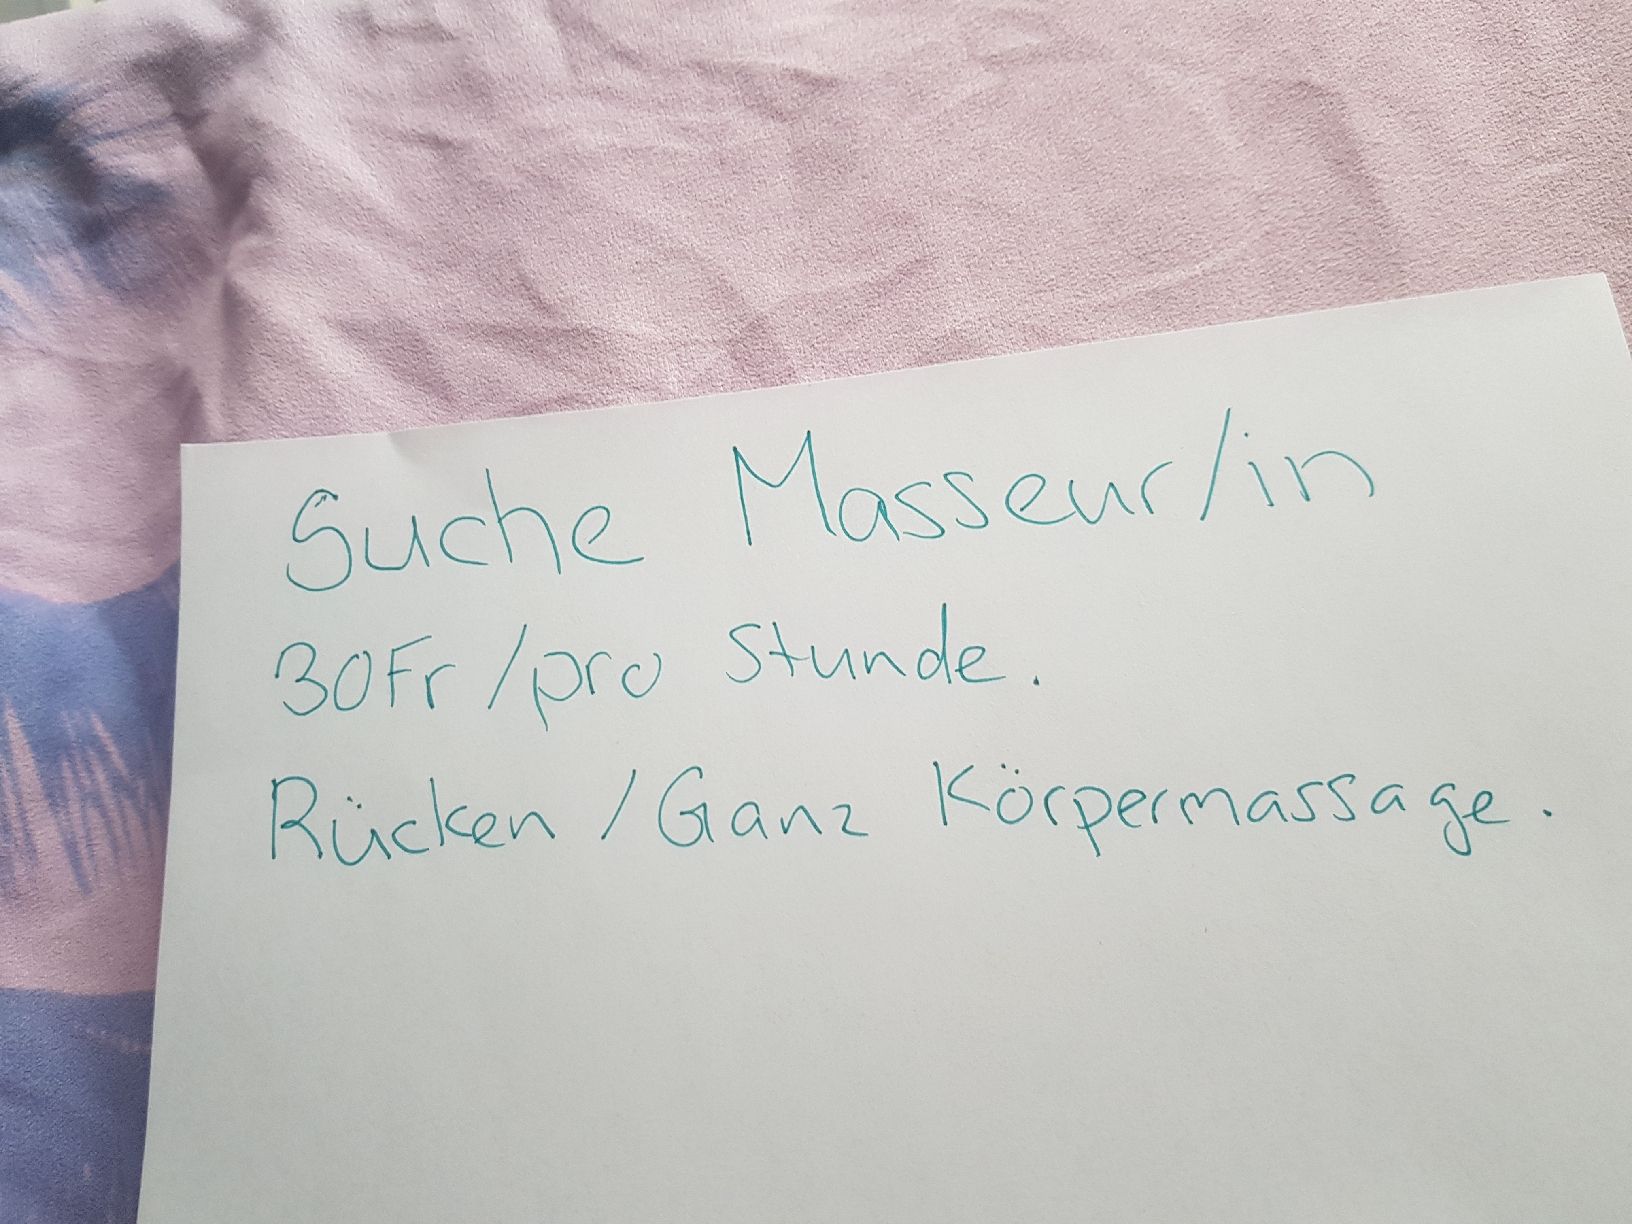 Suche Masseur/in
30Fr/pro Stunde.
Rücken/Ganz Körpermassage.